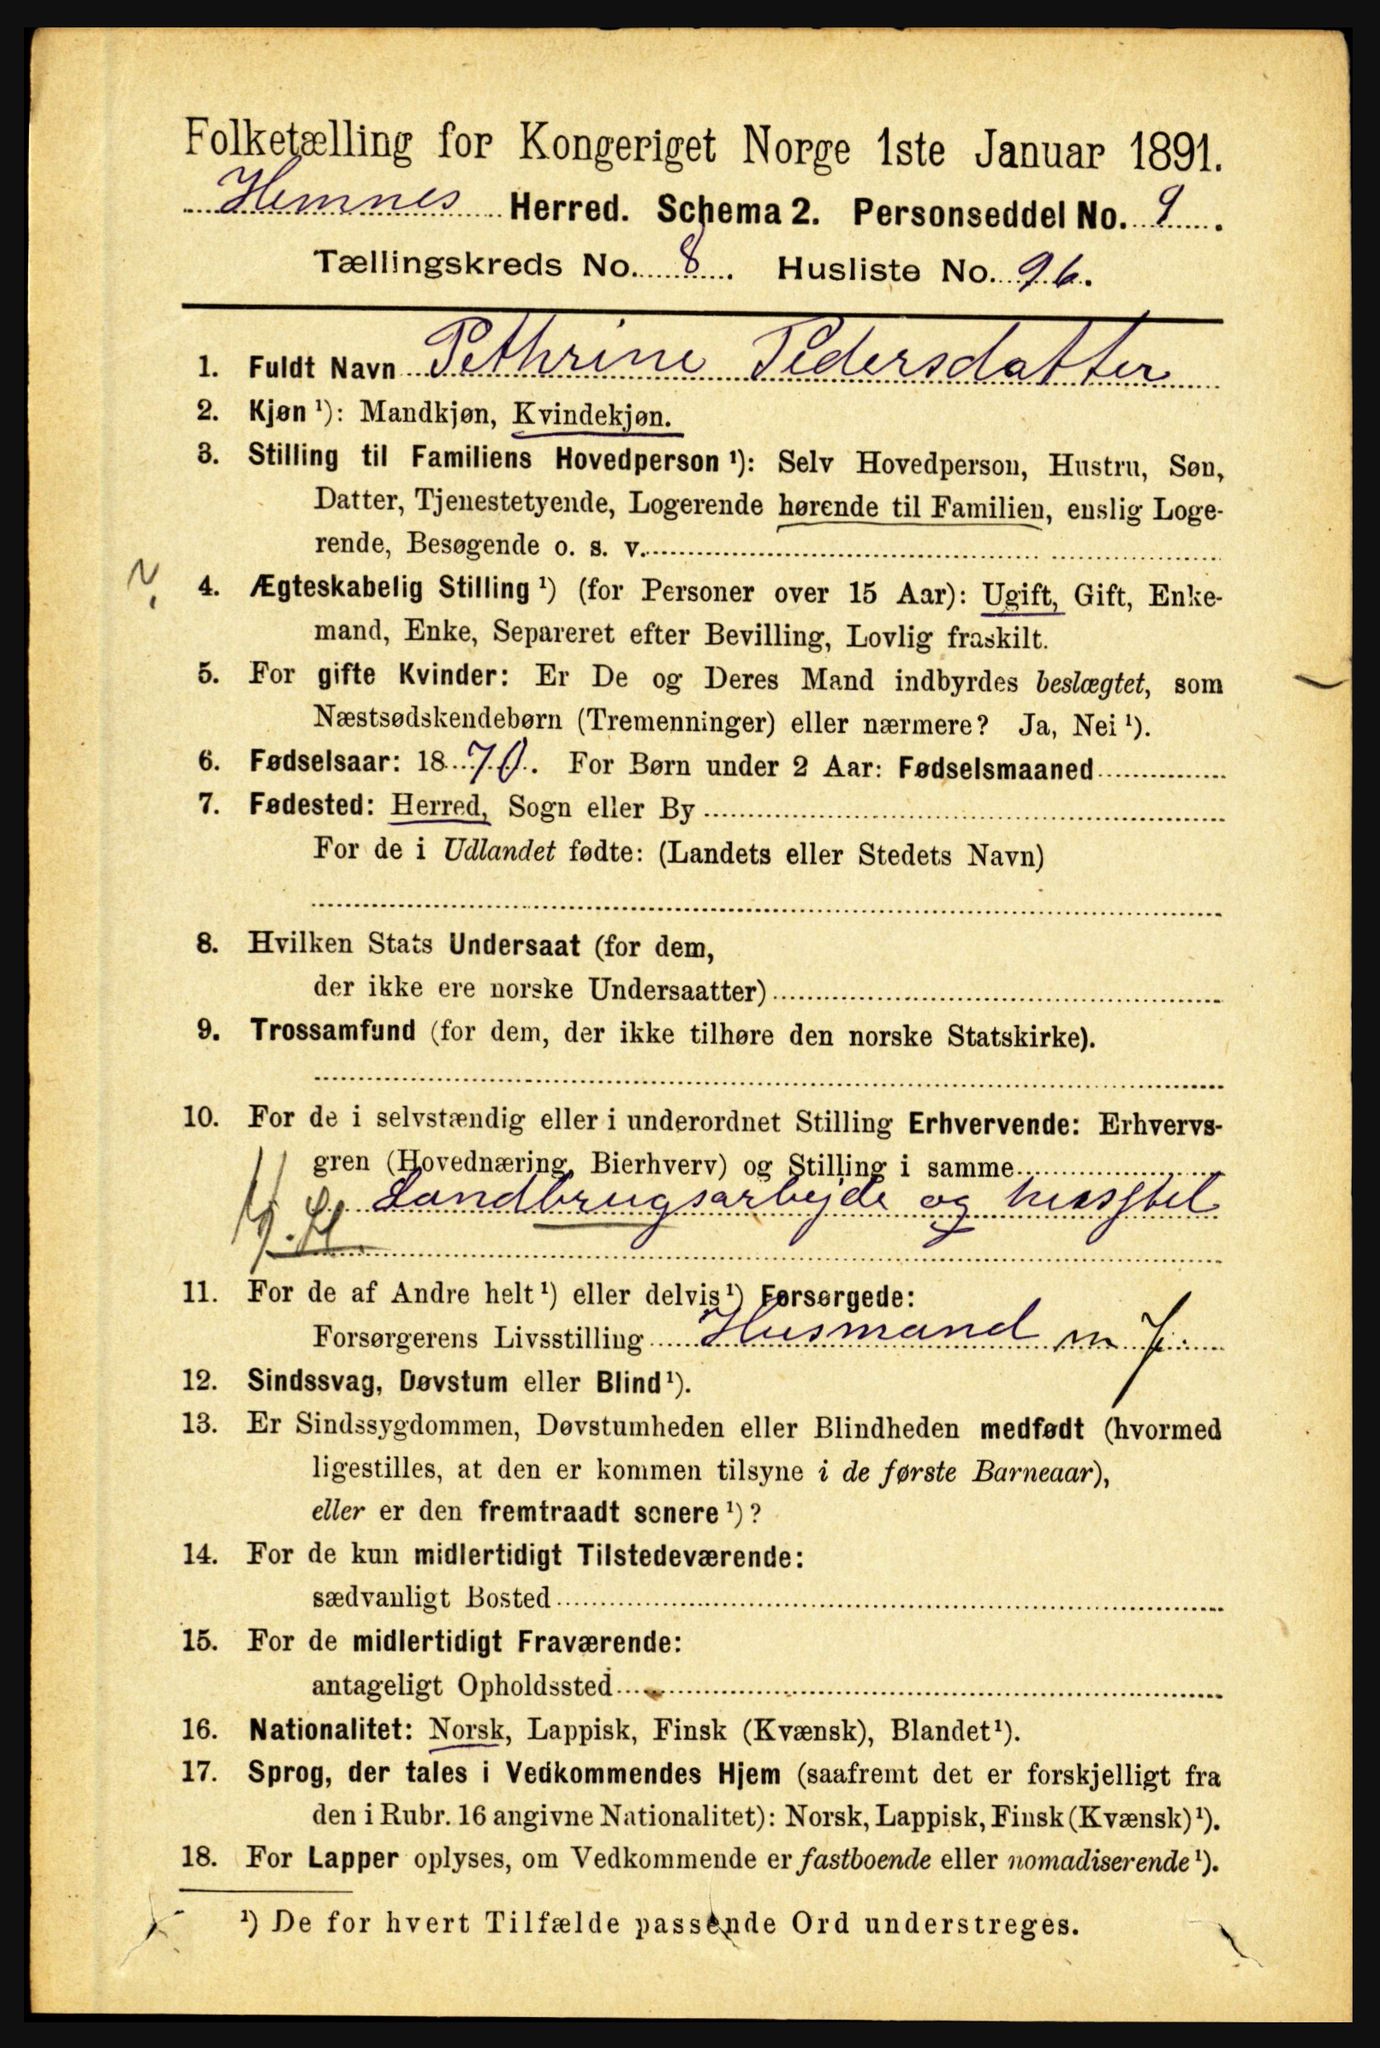 Folketælling for Kongeriget Norge 1ste Januar 1891.
Hemnes Herred. Schema 2. Personseddel No. 9.
Tællingskreds No. 8. Husliste No. 96.
1. Fuldt Navn Pethrine Pedersdatter
2. Kjøn ¹): Mandkjøn, Kvindekjøn.
3. Stilling til Familiens Hovedperson ¹): Selv Hovedperson, Hustru, Søn,
Datter, Tjenestetyende, Logerende hørende til Familien, enslig Loge-
rende, Besøgende o. s. v.
4. Ægteskabelig Stilling ¹) (for Personer over 15 Aar): Ugift, Gift, Enke-
mand, Enke, Separeret efter Bevilling, Lovlig fraskilt.
5. For gifte Kvinder: Er De og Deres Mand indbyrdes beslægtet, som
Næstsødskendebørn (Tremenninger) eller nærmere? Ja, Nei ¹).
6. Fødselsaar: 1870. For Børn under 2 Aar: Fødselsmaaned
7. Fødested: Herred, Sogn eller By
For de i Udlandet fødte: (Landets eller Stedets Navn)
8. Hvilken Stats Undersaat (for dem,
der ikke ere norske Undersaatter)
9. Trossamfund (for dem, der ikke tilhøre den norske Statskirke).
10. For de i selvstændig eller i underordnet Stilling Erhvervende: Erhvervs-
gren (Hovednæring, Bierhverv) og Stilling i samme
Landbrugsarbejde og husstel
11. For de af Andre helt ¹) eller delvis ¹) Forsørgede:
Forsørgerens Livsstilling Husmand m J.
12. Sindssvag, Døvstum eller Blind ¹).
13. Er Sindssygdommen, Døvstumheden eller Blindheden medfødt (hvormed
ligestilles, at den er kommen tilsyne i de første Barneaar),
eller er den fremtraadt senere ¹)?
14. For de kun midlertidigt Tilstedeværende:
sædvanligt Bosted
15. For de midlertidigt Fraværende:
antageligt Opholdssted
16. Nationalitet: Norsk, Lappisk, Finsk (Kvænsk), Blandet ¹).
17. Sprog, der tales i Vedkommendes Hjem (saafremt det er forskjelligt fra
den i Rubr. 16 angivne Nationalitet): Norsk, Lappisk, Finsk (Kvænsk) ¹).
18. For Lapper oplyses, om Vedkommende er fastboende eller nomadiserende ¹).
¹) De for hvert Tilfælde passende Ord understreges.